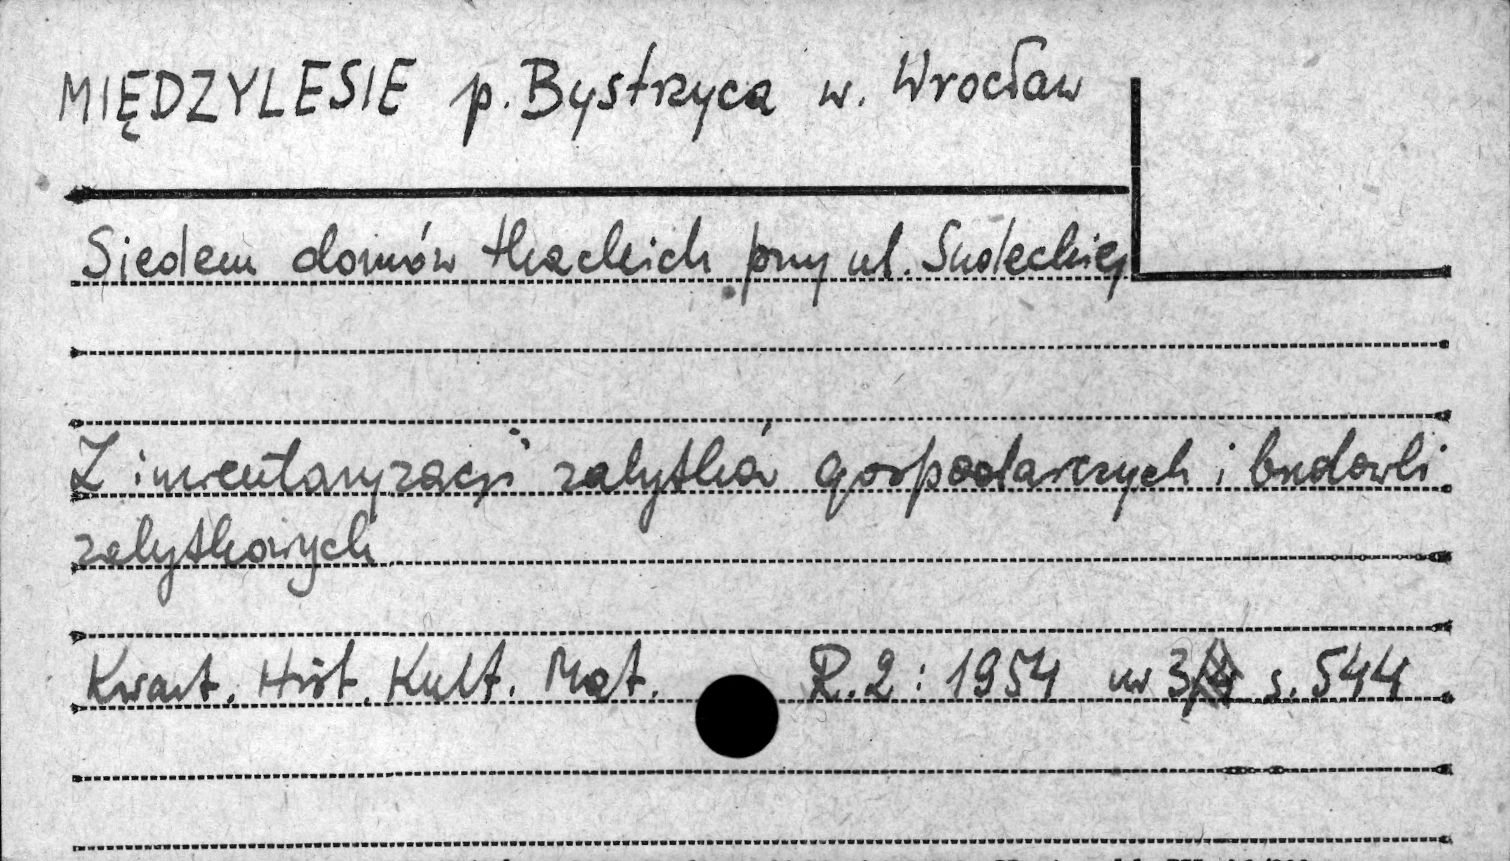 MIĘDZYLESIE p. Bystrzyca w. Wrocław
Siedem domów tkackich przy ul. Sudeckiej
Z inwentaryzacji zabytków gospodarczych i budowli
zabytkowych
Kwart. Hist. Kult. Mat. R.2: 1954 nr 3 s. 544